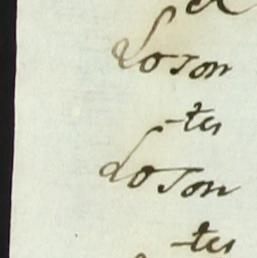 Loson
-ter
Loson
-ter